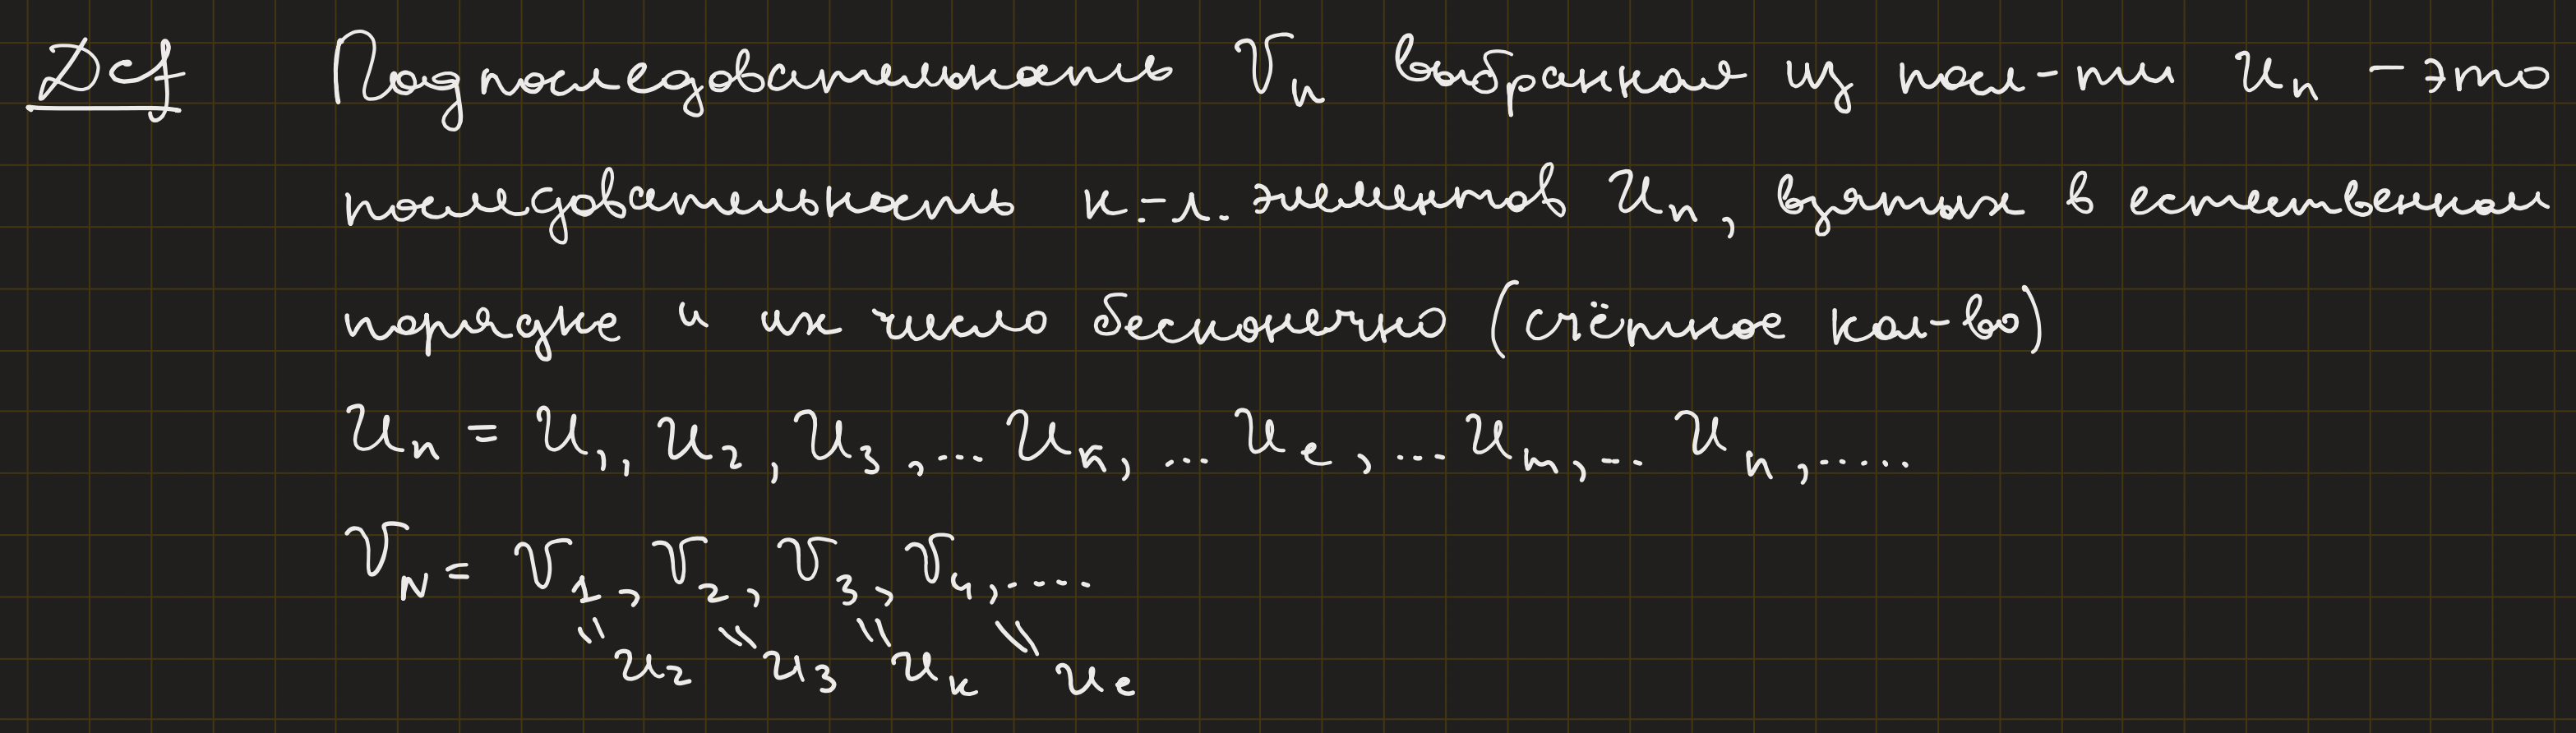 Def Подпоследовательность Vn выбранная из посл-ти Un - это
последовательность к.-л. элементов Un, взятых в естественном
порядке и их число бесконечно (счётное кол-во)
Un = U1, U2, U3, ... Uk, ... Ue, ... Um, ... Un, .....
VN = V1, V2, V3, V4, ....
" \\ \\ \\
U2 U3 Uk Ue